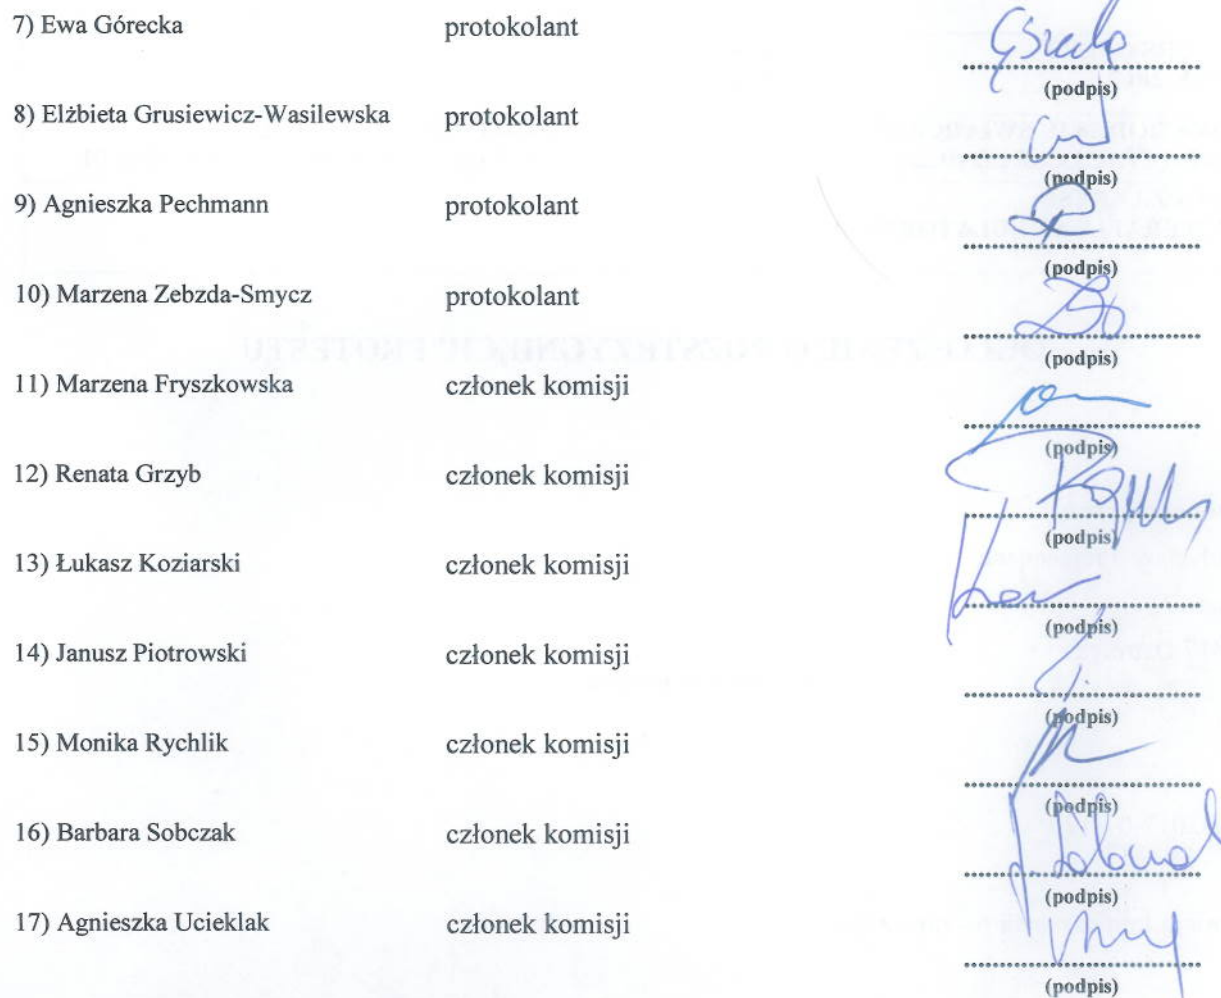 7) Ewa Górecka protokolant
(podpis)
8) Elżbieta Grusiewicz-Wasilewska protokolant
(podpis)
9) Agnieszka Pechmann protokolant
(podpis)
10) Marzena Zebzda-Smycz protokolant
(podpis)
11) Marzena Fryszkowska członek komisji
(podpis)
12) Renata Grzyb członek komisji
(podpis)
13) Łukasz Koziarski członek komisji
(podpis)
14) Janusz Piotrowski członek komisji
(podpis)
15) Monika Rychlik członek komisji
(podpis)
16) Barbara Sobczak członek komisji
(podpis)
17) Agnieszka Ucieklak członek komisji
(podpis)